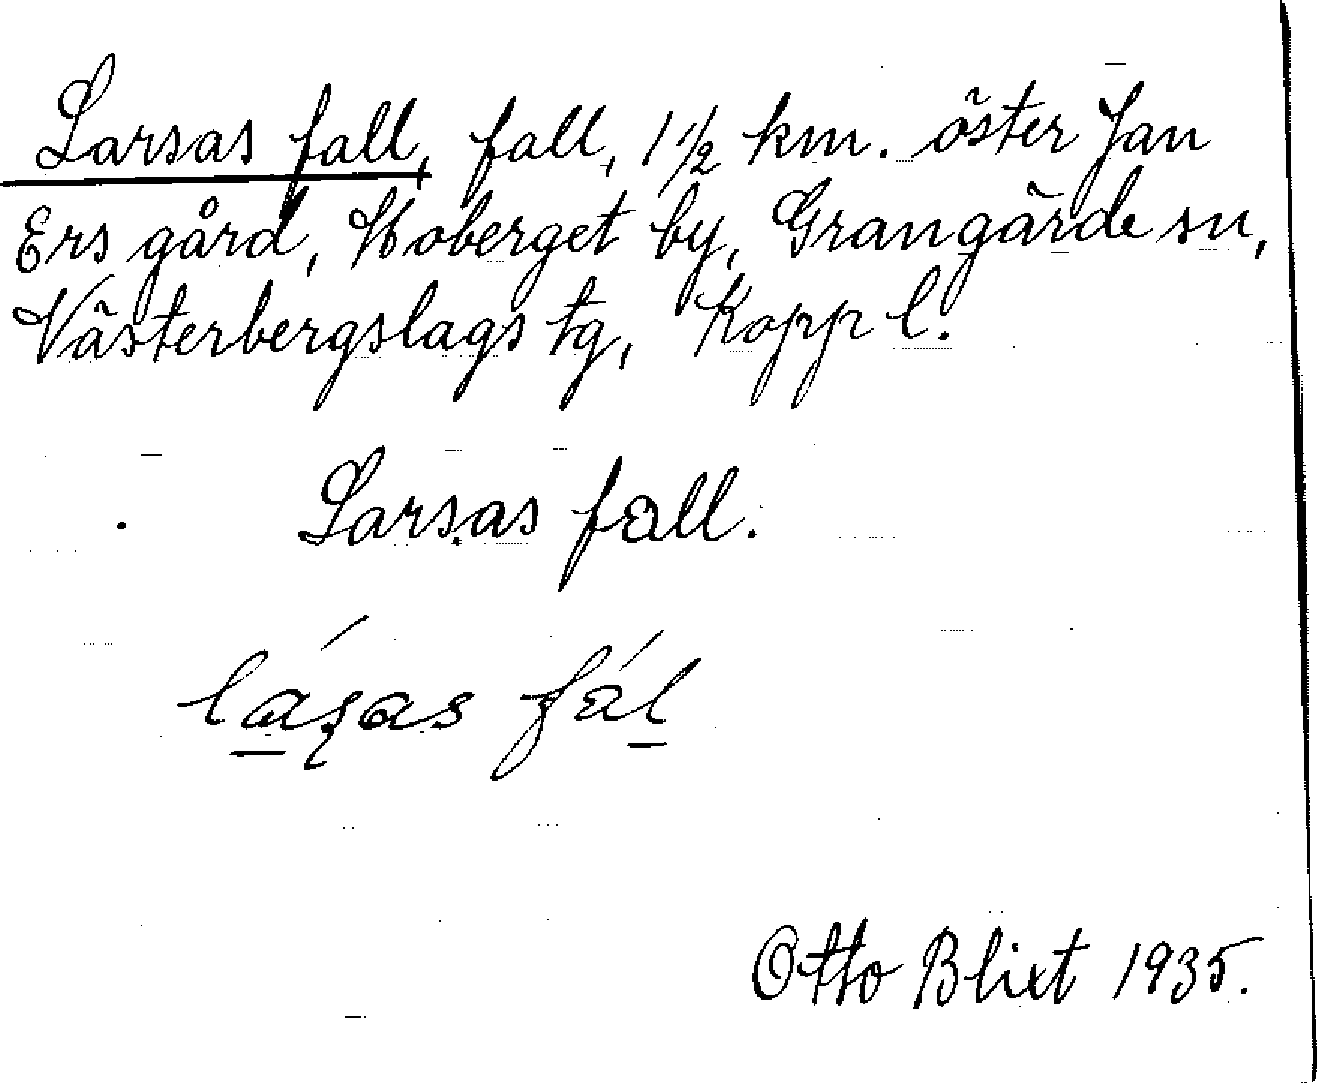 Larsas fall, fall, 1 1/2 km. öster Jan
Ers gård, Hoberget by, Grangärde sn,
Västerbergslags tg, Kopp l.
Larsas fall.
lásas fál
Otto Blixt 1935.